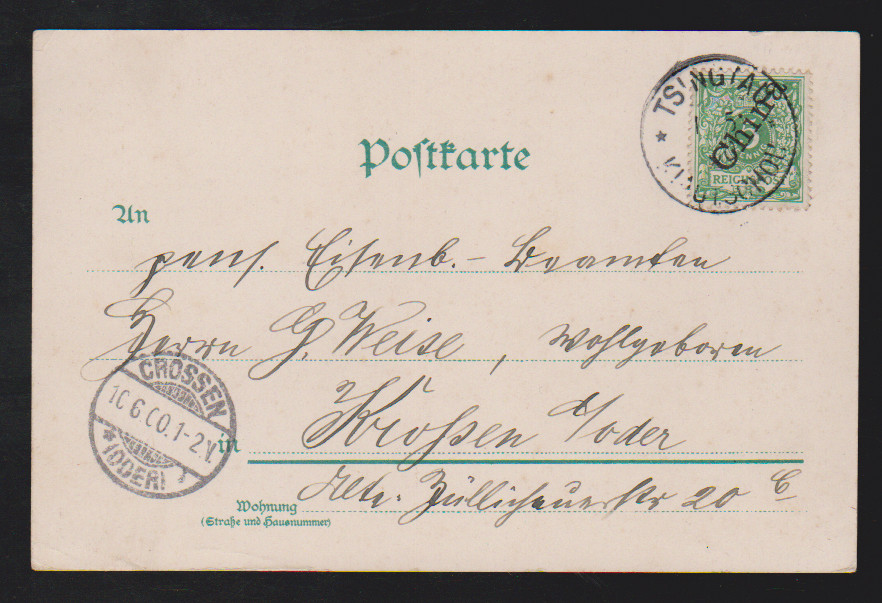 TSINGTAU
China
5
REICHSPOST
* KIAUTSCHOU
Postkarte
An
pens. Eisenb.- Beamten
Herrn G. Weise, Wohlgeboren
CROSSEN
10 6 00. 1-2 V
* (ODER)
in Krossen a/oder
Alte Züllichauerstr 20 C
Wohnung
(Straße und Hausnummer)